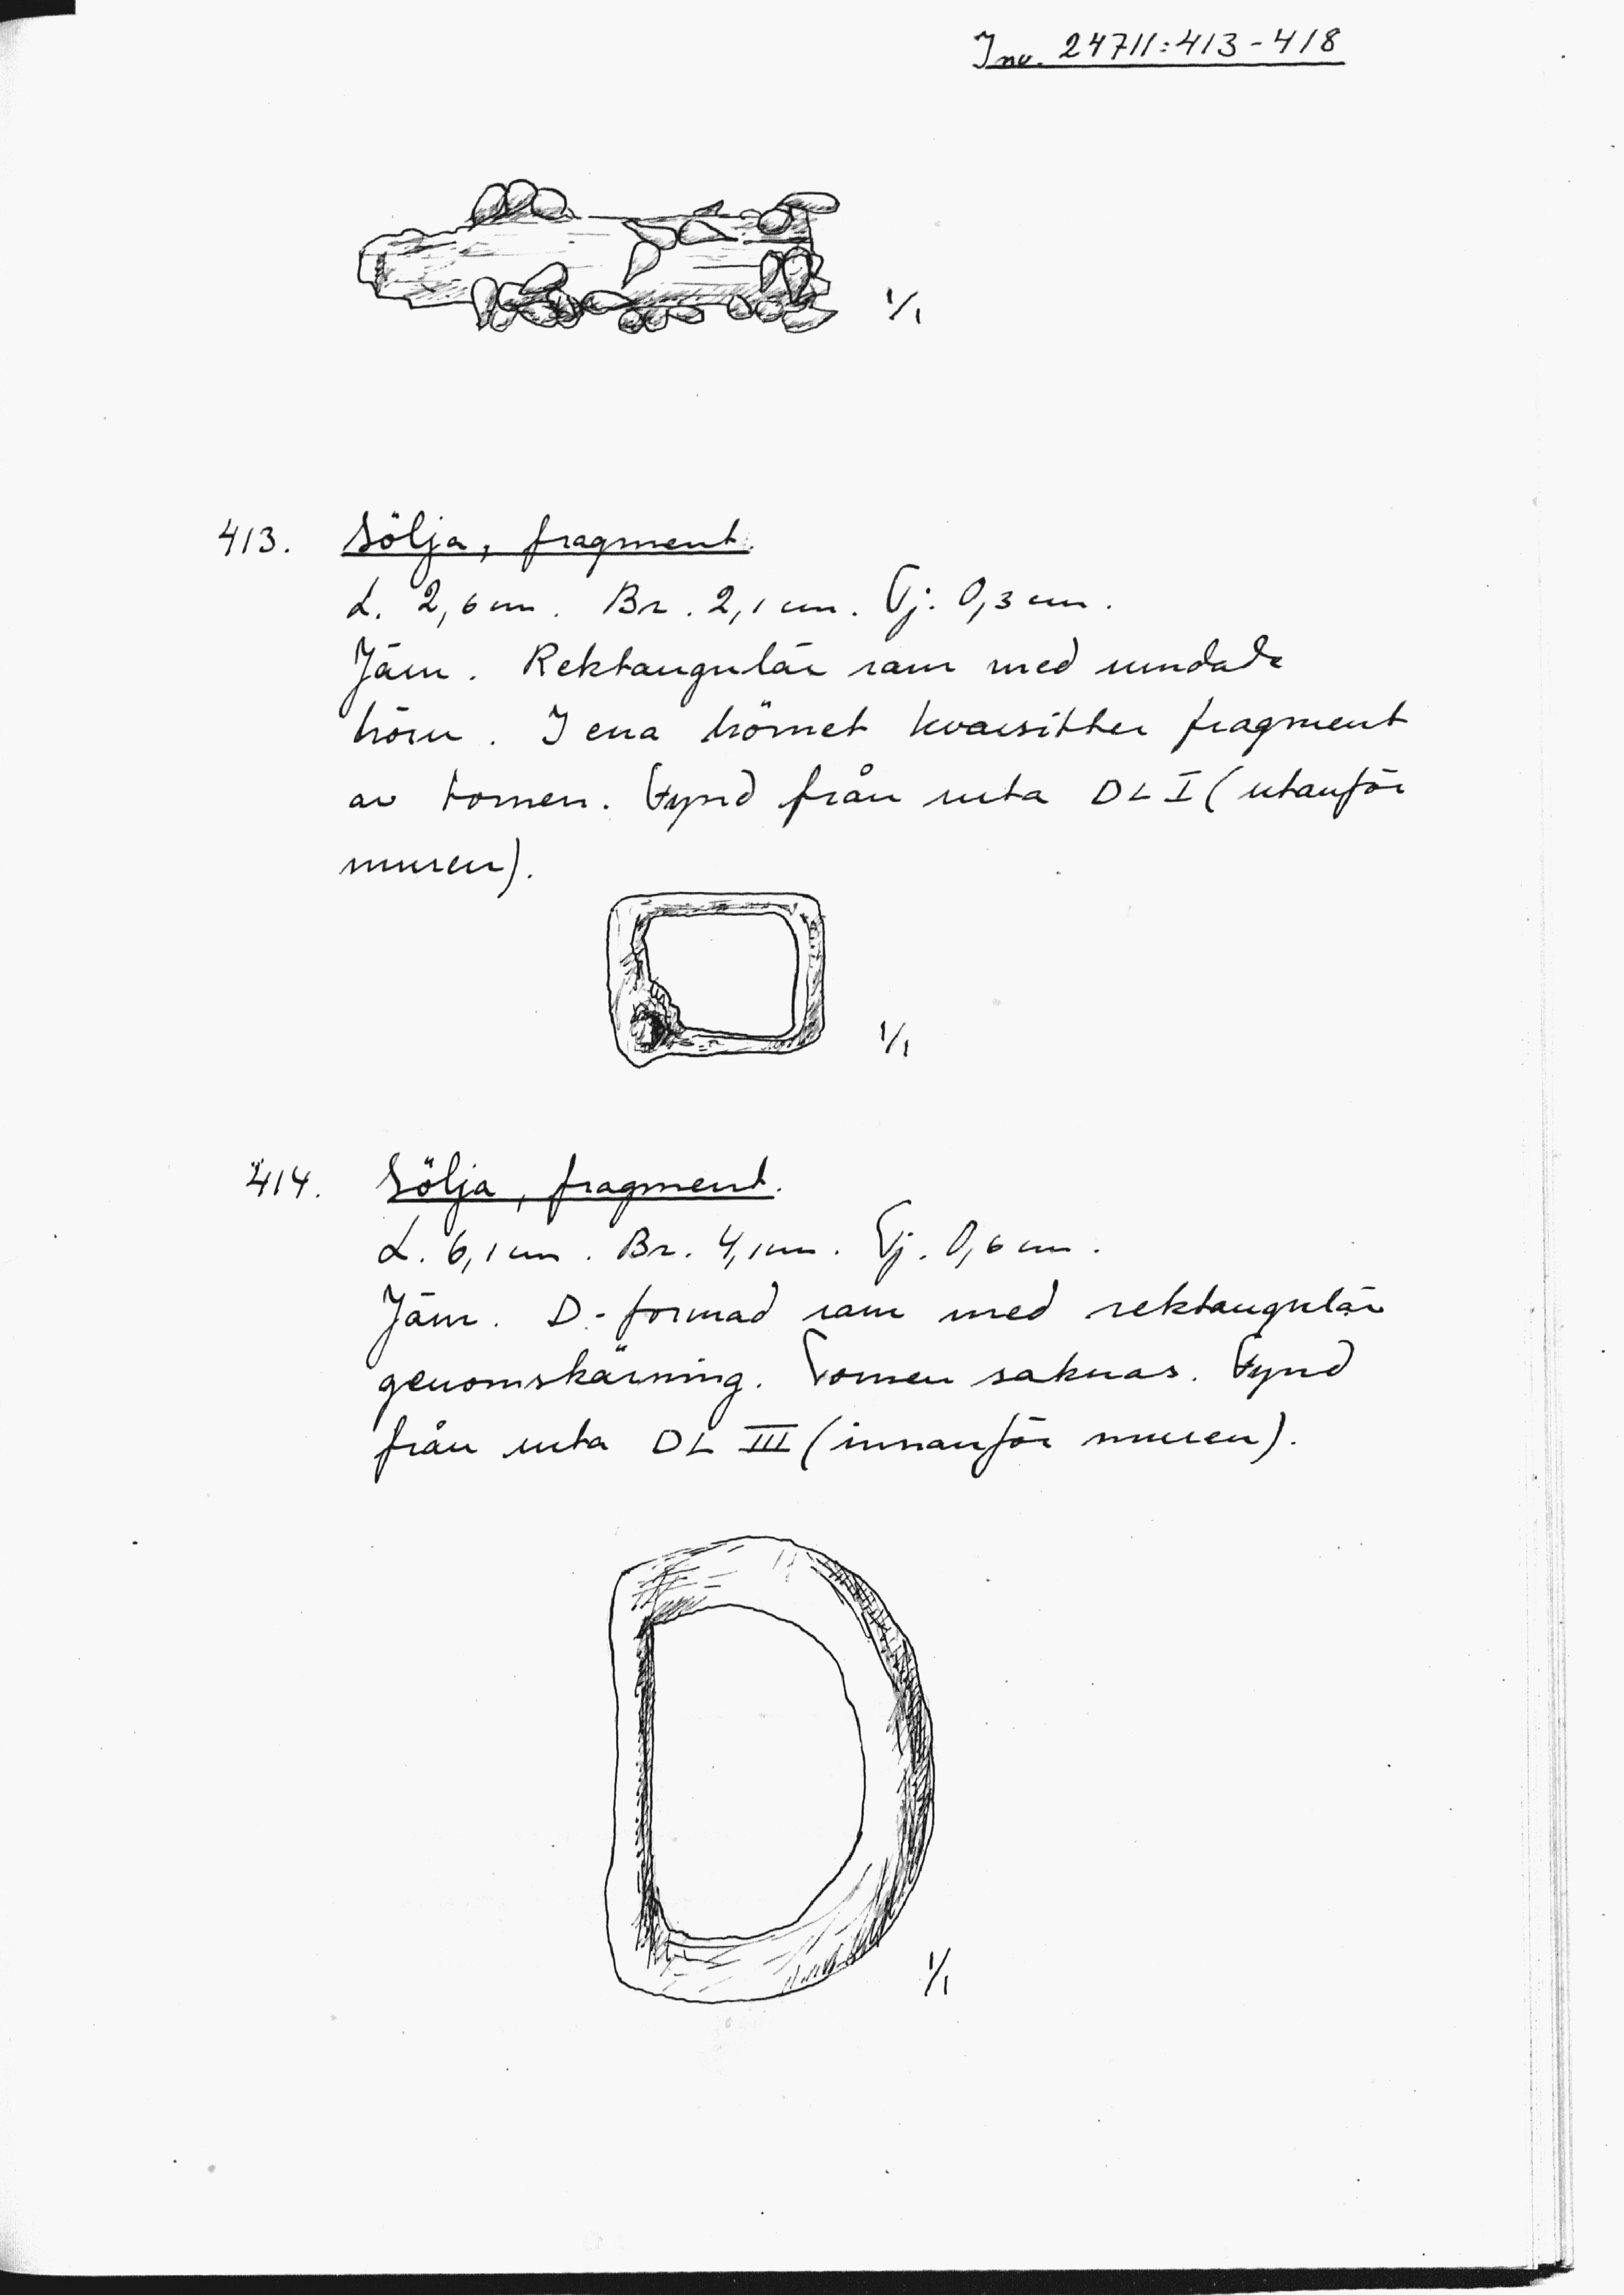 Inv. 24711:413-418
1/1
413. Sölja, fragment.
L. 2,6 cm. Br. 2,1 cm. Tj. 0,3 cm.
Järn. Rektangulär ram med rundade
hörn. I ena hörnet kvarsitter fragment
av tornen. Fynd från ruta DL I (utanför
muren).
1/1
414. Sölja, fragment.
L. 6,1 cm. Br. 4,1 cm. Tj. 0,6 cm.
Järn. D-formad ram med rektangulär
genomskärning. Tornen saknas. Fynd
från ruta DL III (innanför muren).
1/1